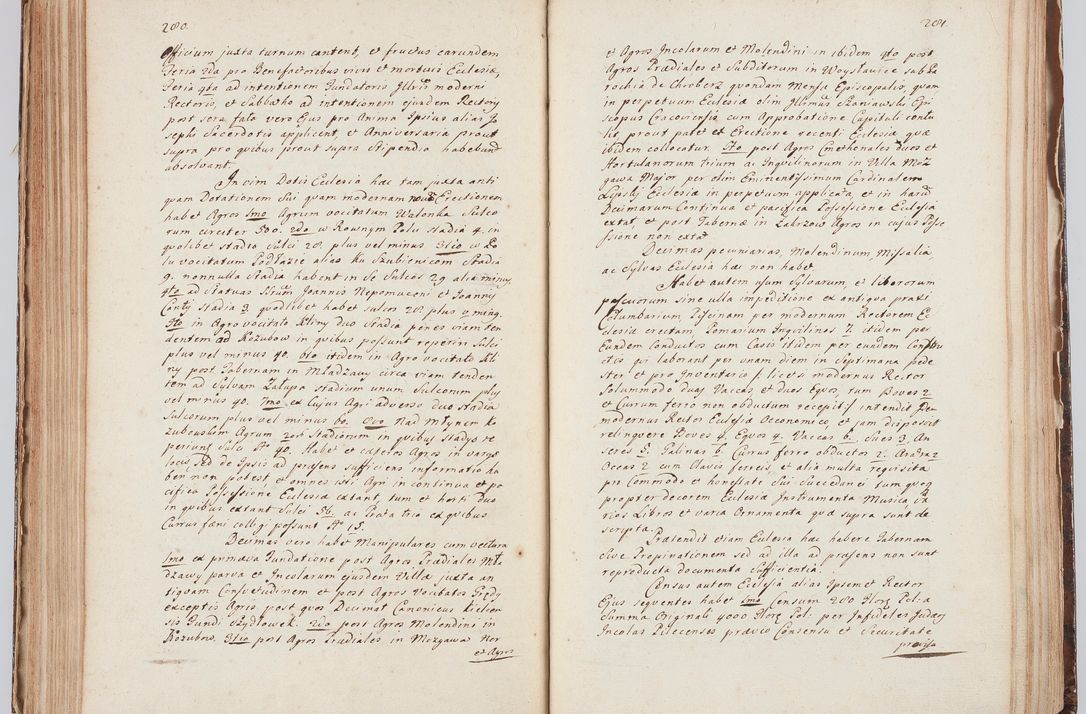 280.
Officium juxta turnum cantent, et fructus earundem
Feria 2da pro Benefactoribus vivis et mortuis Ecclesiæ,
Feria 4ta ad intentionem Fundatoris moderni
Rectoris, et Sabbatho ad intentionem ejusdem Rectoris
post sera fata vero Ejus pro Anima Ipsius alias Jo
sephi Sacerdotis applicent, et Anniversaria prout
supra pro quibus prout supra Stipendia habebunt
absolvant.
In cim Dotis Ecclesia hæc tam juxta anti
quam Dotationem Sui quam modernam Erectionem
habet Agros 1mo Agrum vocitatum Walonka Sulco
rum circiter 500. 2do w Rownym Polu stadia 4. in
quolibet stadio Sulci 28 plus vel minus 3tio w Po
lu vocitatum Podłazie alias ku Szubienicom Stadia
9. nonnulla stadia habent in se Sulcos 29 alia minus,
4to ad Statuas Joannis Nepomuceni et Joannis
Canty Stadia 3. quodlibet habet sulcos 28 plus v. minus.
5to in Agro vocitato Kliny duo Stadia penes viam ten
dentem ad Kozubow in quibus possunt reperiri Sulci
plus vel minus 40. 6to itidem in Agro vocitato Kli
ny post Tabernam in Młodzawy circa viam tenden
tem ad Sylvam Zalupa stadium unum Sulcorum plus
vel minus 40. 7mo ex Cujus Agri adverso duo Stadia
Sulcorum plus vel minus 60. 8vo Nad Młynem Ko
zubowskim Agrum Stadiorum in quibus Stadys re
periunt Sulci 40. Habet et cæteros Agros in varys
locis, sed de Ipsis ad præsens sufficiens informatio ha
beri non potest et omnes isti Agri in continua et pa
cifica Possessione Ecclesiæ extant, tum et horti duo
in quibus extant Sulci 56. ac Prata tria ex quibus
Currus fæni colligi possunt No 15.
Decimas vero habet Manipulares cum vectura
1mo ex primæva Fundatione post Agros Prædiales Mło
dzawy parva et Incolarum ejusdem Villæ juxta an
tiquam Consvetudinem et post Agros Vocitatos
exceptis Agris post quos Decimat Canonicus Kielcen
sis Fundi Szydłowek. 2do post Agros Molendini in
Kozubow. 3tio post Agros Prædiales in Mozgawa
et Agros
281.
et Agros Incolarum et Molendini in ibidem 4to post
Agros Prædiales et Subditorum in Woysławice sub Pa
rochia de Chroberz quondam Mensæ Episcopalis, quam
in perpetuum Ecclesiæ olim Illmus Szaniawski Epi
scopus Cracoviensis cum Approbatione Capituli contu
lit, prout patet ex Erectione recenti Ecclesiæ quæ
ibidem collocatur. 5to post Agros Cmethonales duos et
Hortulanorum trium ac Inquilinorum in Villa Moz
gawa Major per olim Eminentissimum Cardinalem
Lipski Ecclesiæ in perpetuum applicata, et in harum
Decimarum Continua et pacifica Possessione Ecclesia
extat, et post Tabernæ in Zakrzow Agros in cujus Posse
ssione non extat.
Decimas pecuniarias, Molendinum, Missalia,
ac Sylvas Ecclesia hæc non habet.
Habet autem usum Sylvarum, et liberorum
pascuorum sine ulla impeditione ex antiqua praxi
Columbarium, Piscinam per modernum Rectorem E
clesiæ erectam. Pomarium Inquilinos 7. itidem per
Eundem Conductos cum Casis itidem per eundem Constru
ctis qi laborant per unam diem in Septimana pede
ster et pro Inventario licet modernus Rector
solummodo duas Vaccas et duos Equos, tum Boves 2
et Currum ferro non obductum recepit intendit
modernus Rector Ecclesiæ Oeconomice et jam disposuit
relinquere Boves 4. Equos 4. Vaccas 6. Sues 3. An
seres 5. Galinas 6. Currus ferro obductos 2. Aratra 2
Occas 2 cum clavis ferreis, et alia multa requisita
pro Commodo et honestate Sui Succedanei tum quoq
propter decorem Ecclesiæ Instrumenta Musica, Va
rios Libros et varia Ornamenta quæ supra sunt de
scripta.
Prætendit etiam Ecclesia hæc habere Tabernam
sive Propinationem sed ad illa ad præsens non sunt
reproducta documenta Sufficientia.
Census autem Ecclesia alias Ipsemet Rector
Ejus sequentes habet 1mo Censum 280 Flor Polia
Summæ Originalis 4000 Flor Pol. per Infideles Judæos
Incolas Pilecenses prævio Consensu et Securitate
prævisa